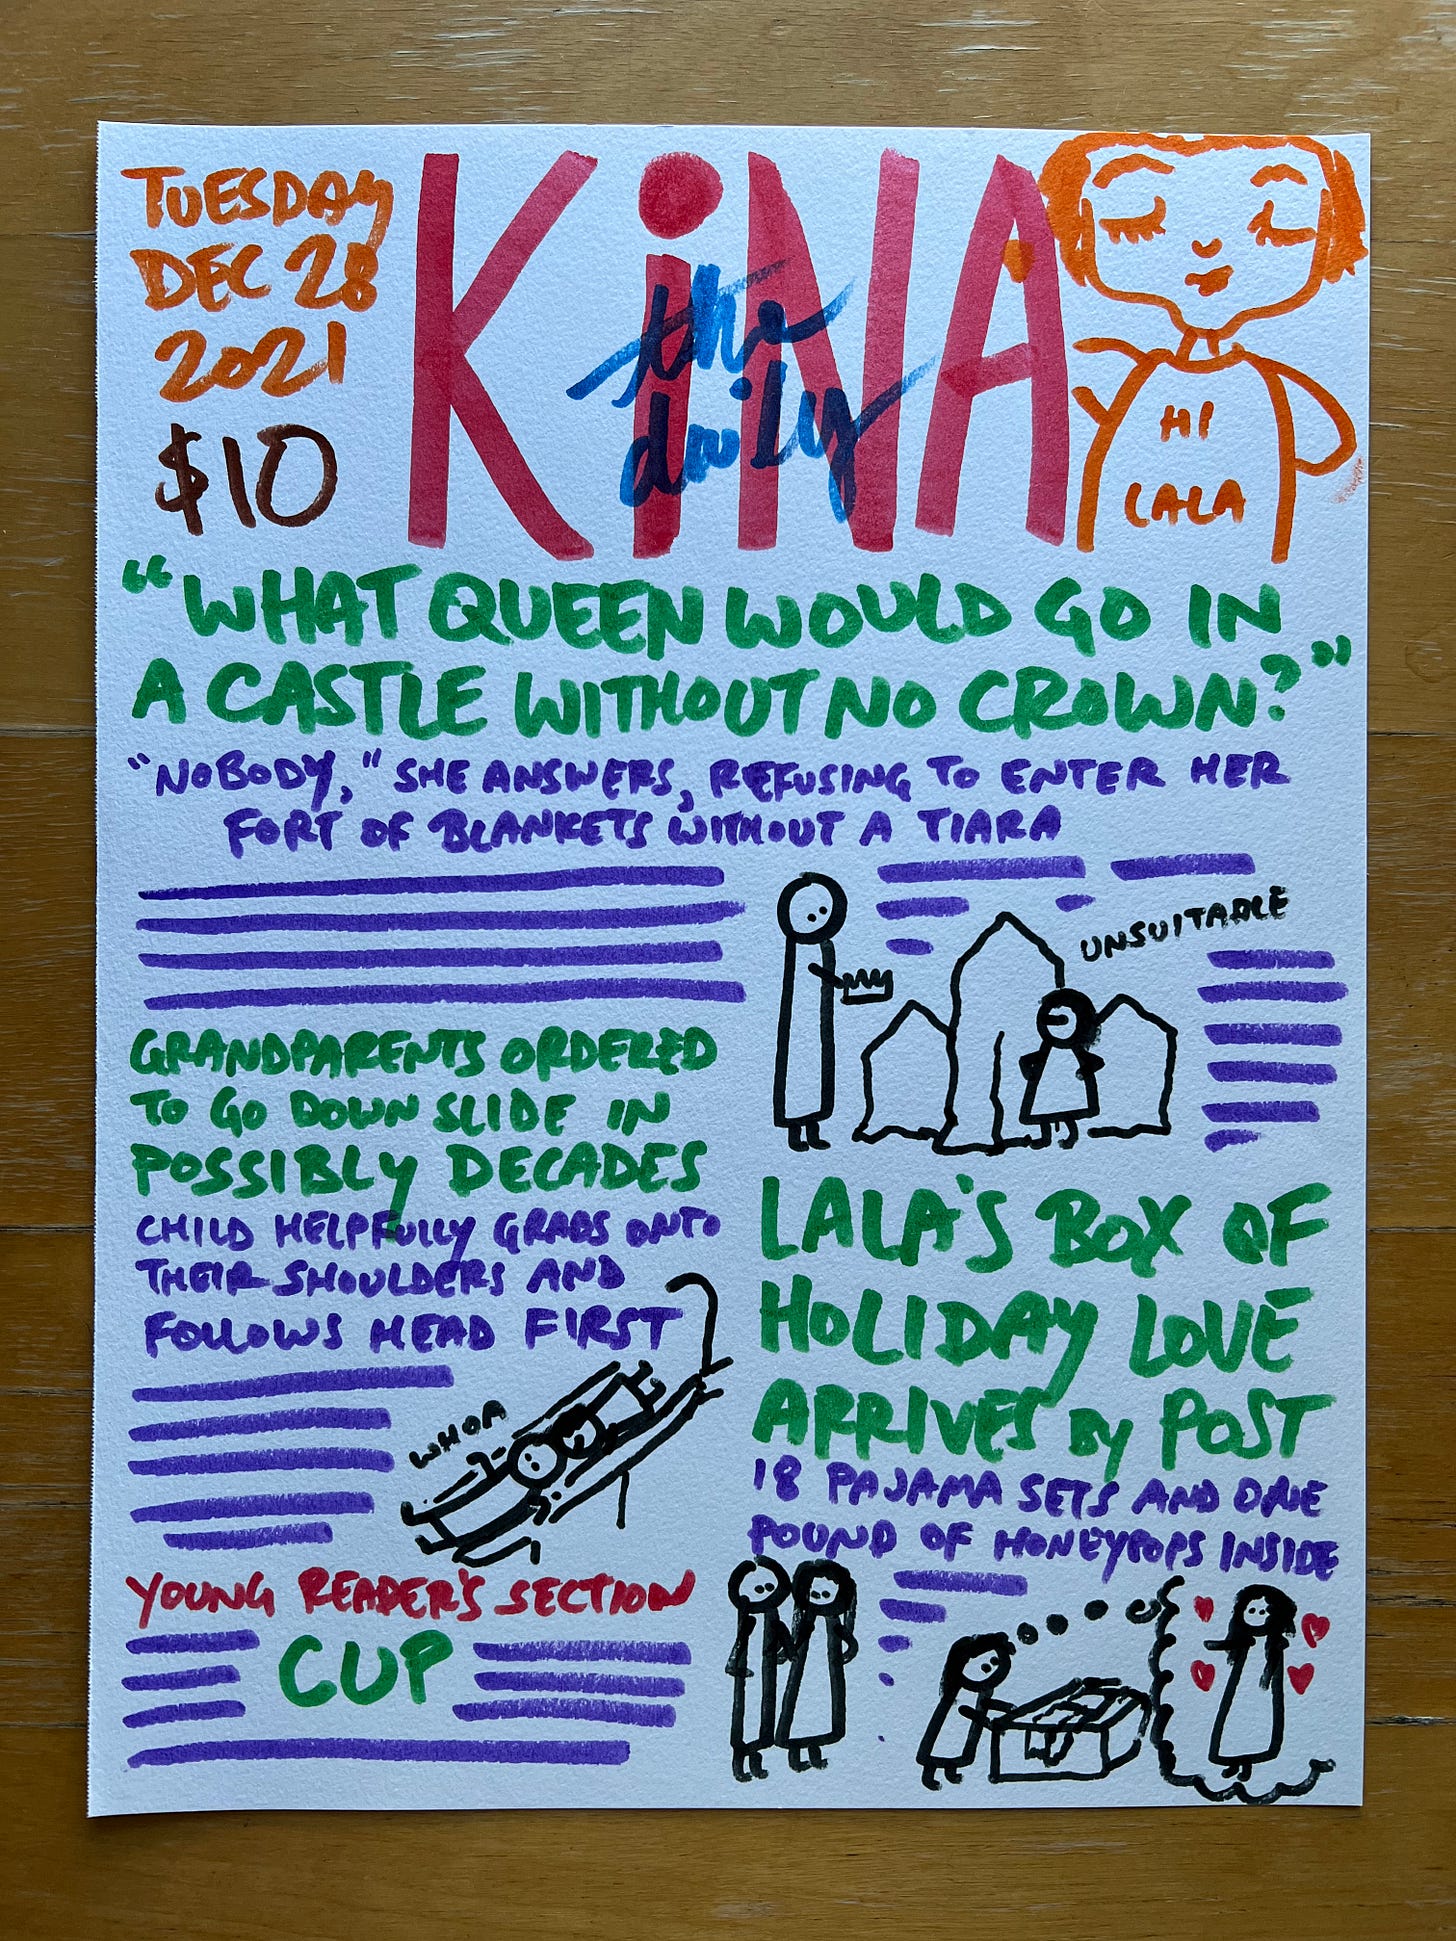 TUESDAY
DEC 28
2021
$10
KiNA
the
daily
HI
LALA
"WHAT QUEEN WOULD GO IN
A CASTLE WITHOUT NO CROWN?"
"NOBODY," SHE ANSWERS, REFUSING TO ENTER HER
FORT OF BLANKETS WITHOUT A TIARA
UNSUITABLE
GRANDPARENTS ORDERED
TO GO DOWN SLIDE IN
POSSIBLY DECADES
CHILD HELPFULLY GRABS ONTO
THEIR SHOULDERS AND
FOLLOWS HEAD FIRST
WHOA
LALA'S BOX OF
HOLIDAY LOVE
ARRIVES BY POST
18 PAJAMA SETS AND ONE
POUND OF HONEYPOPS INSIDE
YOUNG READER'S SECTION
CUP